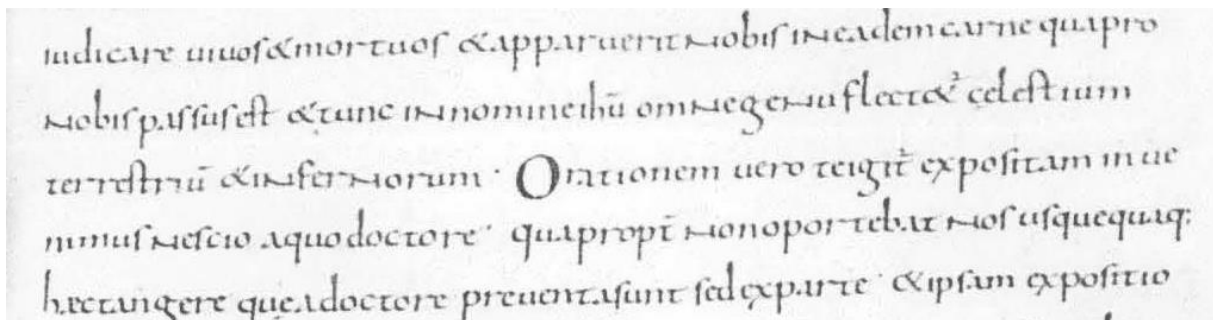 iudicare uiuos & mortuos & apparuerit nobis in eadem carne qua pro
nobis passus est & tunc in nomine ihū omne genu flect&ᷣ cęlestium
terrestriū & infernorum · Orationem uero teigit᷑ expositam inue
nimus nescio a quo doctore · quapropt̄ non oportebat nos usquequaq;
hęc tangere quę a doctore preuenta sunt sed ex parte · & ipsam expositio